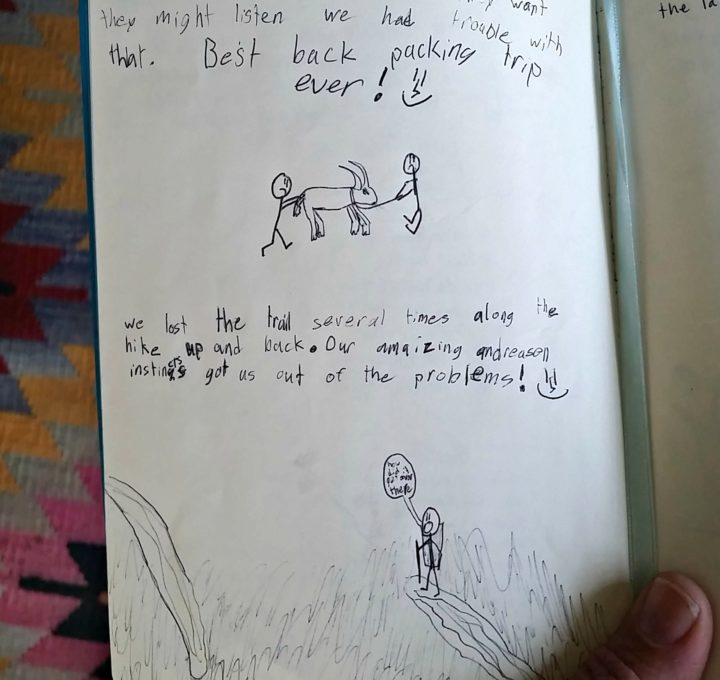 they might listen we had trouble with
want
that. Best back packing trip
ever!
we lost the trail several times along the
hike up and back. Our amaizing andreason
got us out of the problems!
how
did it
get over
there
the la